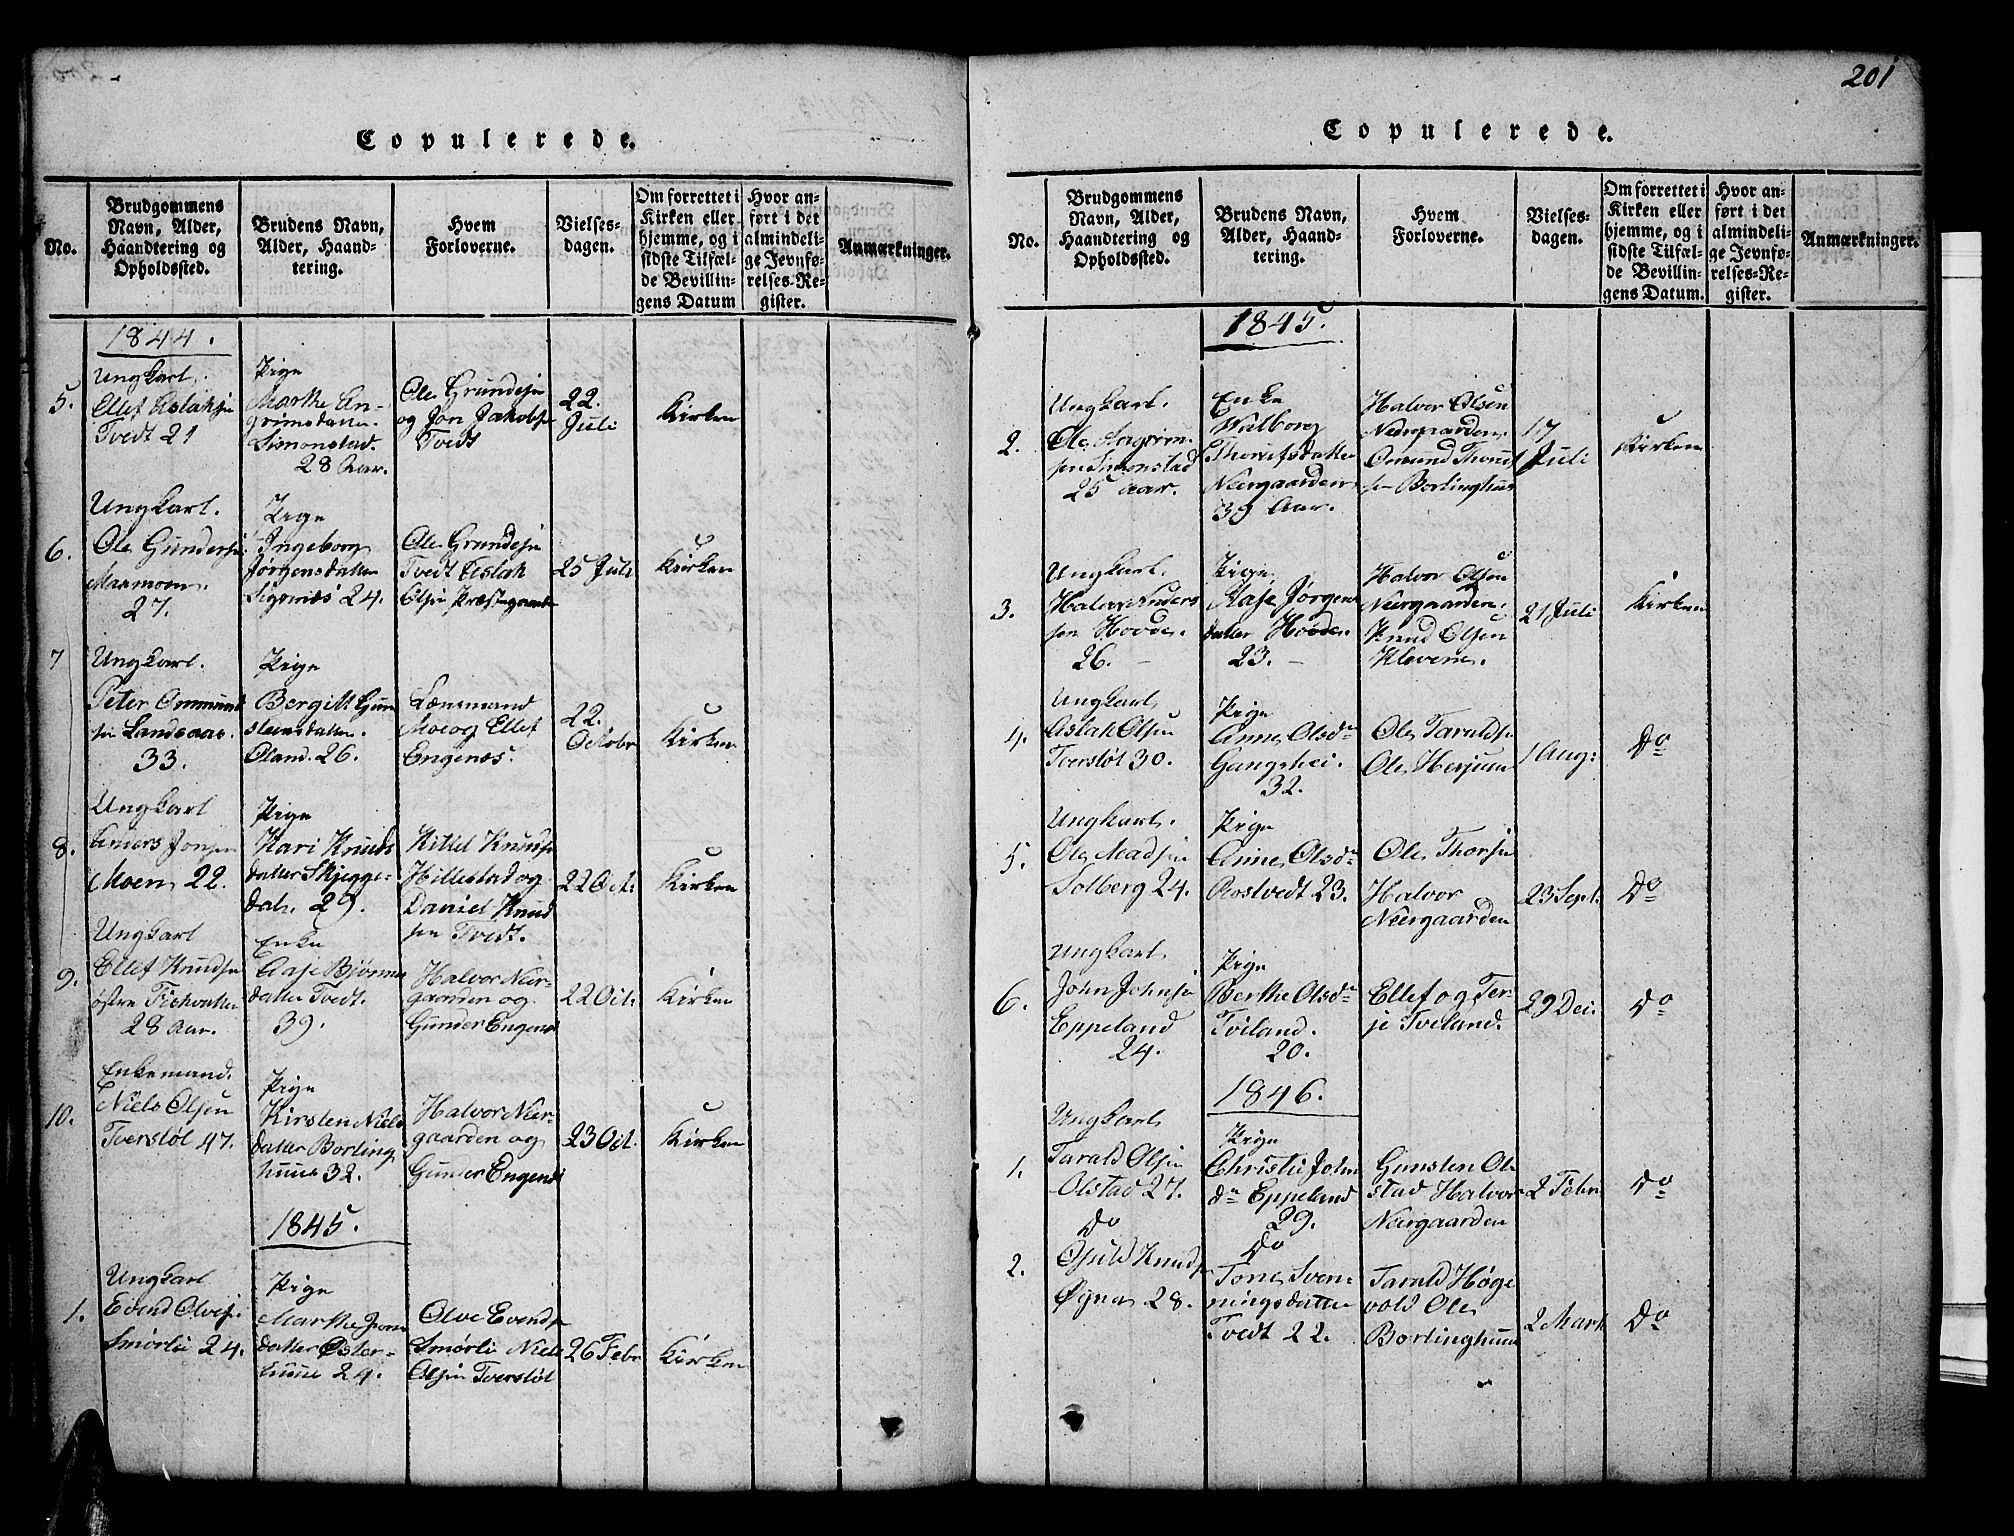 201
Copulerede.
No.
Brudgommens
Navn, Alder,
Haandtering og
Opholdssted.
Brudens Navn,
Alder, Haand-
tering.
Hvem
Forloverne.
Vielses-
dagen.
Om forrettet i
Kirken eller
hjemme, og i
sidste Tilfæl-
de Bevillin-
gens Datum
Hvor an-
ført i det
almindeli-
ge Jevnfø-
relses-Re-
gister.
Anmærkninger.
1844.
5.
Ungkarl.
Ellef Aslaksen
Tvedt 21
Pige
Marthe An-
grimsdatter
Simonstad.
28 Aar.
Ole Grundesen
og Jon Jakobsen
Tvedt
22.
Juli
Kirken
6.
Ungkarl.
Ole Gundersen
27.
Pige
Ingeborg
Jørgensdatter
Sigernæs 24.
Ole Grundesen
Tvedt Aslak
Olsen Præstegaarden
25 Juli
Kirken
7
Ungkarl.
Peter Ommund
sen Landsaas.
33.
Pige
Bergitt Gun
steinsdatter.
Øland. 26.
Lænsmand
Moe og Ellef
Engenæs.
22.
Octobr
Kirken
8.
Ungkarl
Anders Jonsen
Moen 22.
Pige
Kari Knuds
datter Skjegge-
dal. 29.
Kittel Knudsen
Hillestad og
Daniel Knud
sen Tvedt.
22 Oct.
Kirken
9.
Ungkarl
Ellef Knudsen
østre
28 Aar.
Enke
Aase Bjørns
datter Tvedt.
39.
Halvor Neer-
gaarden og
Gunder Engenæs
22 Oct.
Kirken
10.
Enkemand.
Niels Olsen
Tversløl 47.
Pige
Kirsten Niels
datter Borling
huus 32.
Halvor Neer-
gaarden og
Gunder Engenæs
23 Oct.
Kirken
1845.
1.
Ungkarl
Evend Olvesen
Smørli 24.
Pige
Marthe Jons
datter Øster-
huus 24.
Olve Evendsen
Smørli Niels
Olsen Tversløl
26 Febr
Kirken
Copulerede.
No.
Brudgommens
Navn, Alder,
Haandtering og
Opholdssted.
Brudens Navn,
Alder, Haand-
tering.
Hvem
Forloverne.
Vielses-
dagen.
Om forrettet i
Kirken eller
hjemme, og i
sidste Tilfæl-
de Bevillin-
gens Datum.
Hvor an-
ført i det
almindeli-
ge Jevnfø-
relses-Re-
gister.
Anmærkninger.
1845.
2.
Ungkarl.
Ole Angrim
sen Simonstad
25 Aar.
Enke
Walborg
Thorefsdatter
Neergaarden
39 Aar.
Halvor Olsen
Neergaarden.
Osmund Thoref
sen Borlinghuus
17
Juli
Kirken
3.
Ungkarl.
Halvor Anders
sen Hovde.
26.
Pige
Aase Jørgens
datter Hovde.
23.
Halvor Olsen
Neergaarden.
Knud Olsen
Klevene.
21 Juli
Kirken
4.
Ungkarl
Aslak Olsen
Tversløl 30.
Pige
Anne Olsdr
Gangshei.
32.
Ole Taraldsen
Ole Herjuus
1 Aug:
Do
5.
Ungkarl.
Ole Madsen
Solberg 24.
Pige
Anne Olsdr
Rostvedt 23.
Ole Thorsen
Halvor
Neergaarden
23 Sept.
Do
6.
Ungkarl
John Johnsen
Eppeland
24.
Pige
Berthe Olsdr
Tveland.
20.
Ellef og Ter-
je Tveland.
29 Dec.
Do
1846.
1.
Ungkarl
Tarald Olsen
Olstad 27.
Pige
Christie John
dr Eppeland
29.
Gunsten Ol-
stad Halvor
Neergaarden
2 Febr
Do
2.
Do
Osuld Knudsen
Øynes 28.
Do
Tone Sven-
ningsdatter
Tvedt 22.
Tarald Høge
vold Ole
Borlinghuus
2 Marts
Do